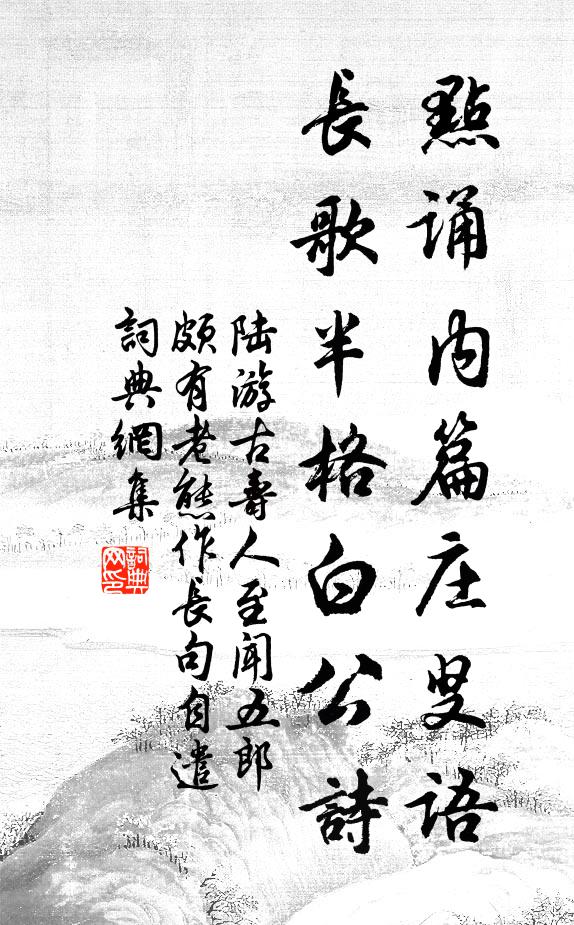 點誦内篇庄叟語
長歌半格白公詩
陸游古壽人至聞五郎
頗有老態作長句自遣
詞典網集
詞典网印